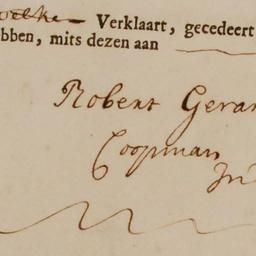 welken Verklaart, gecedeert
bben, mits dezen aan
Robert Gerar
Coopman